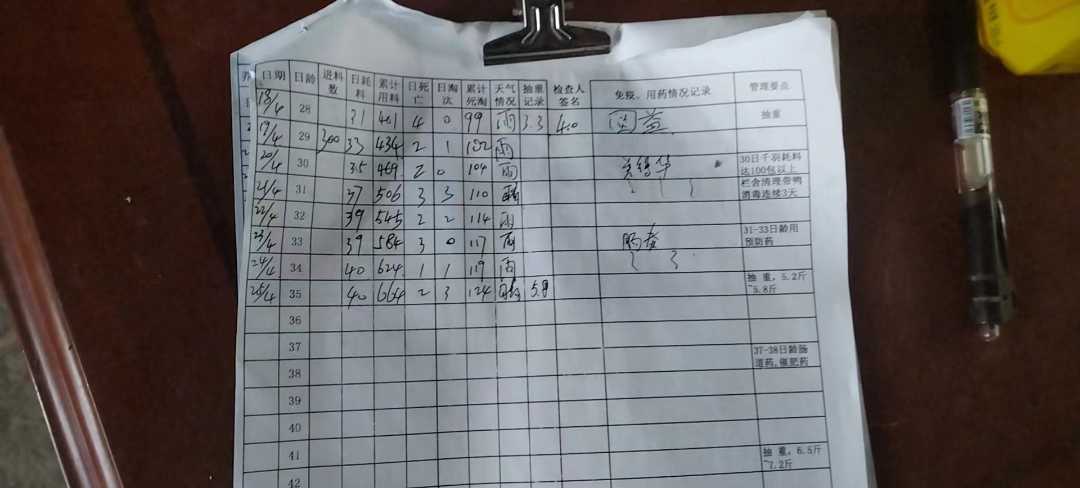 日期 日龄 进料数 日耗料 累计用料 日死亡 日淘汰 累计死淘 天气情况 抽重记录 检查人签名 免疫、用药情况记录 管理要点
18/4 28 31 401 4 0 99 雨 3.3 4.0 抽重
19/4 29 300 33 434 2 1 102 雨
20/4 30 35 469 2 0 104 雨 30日千羽耗料达100包以上
21/4 31 37 506 3 3 110 栏舍清理带鸭消毒连续3天
22/4 32 39 545 2 2 114 雨
23/4 33 39 584 3 0 117 雨 肠毒 31-33日龄用预防药
24/4 34 40 624 1 1 119 雨
25/4 35 40 664 2 3 124 5.8 抽重，5.2斤~5.8斤
36
37 37-38日龄肠道药,催肥药
38
39
40
41 抽重，6.5斤~7.2斤
42